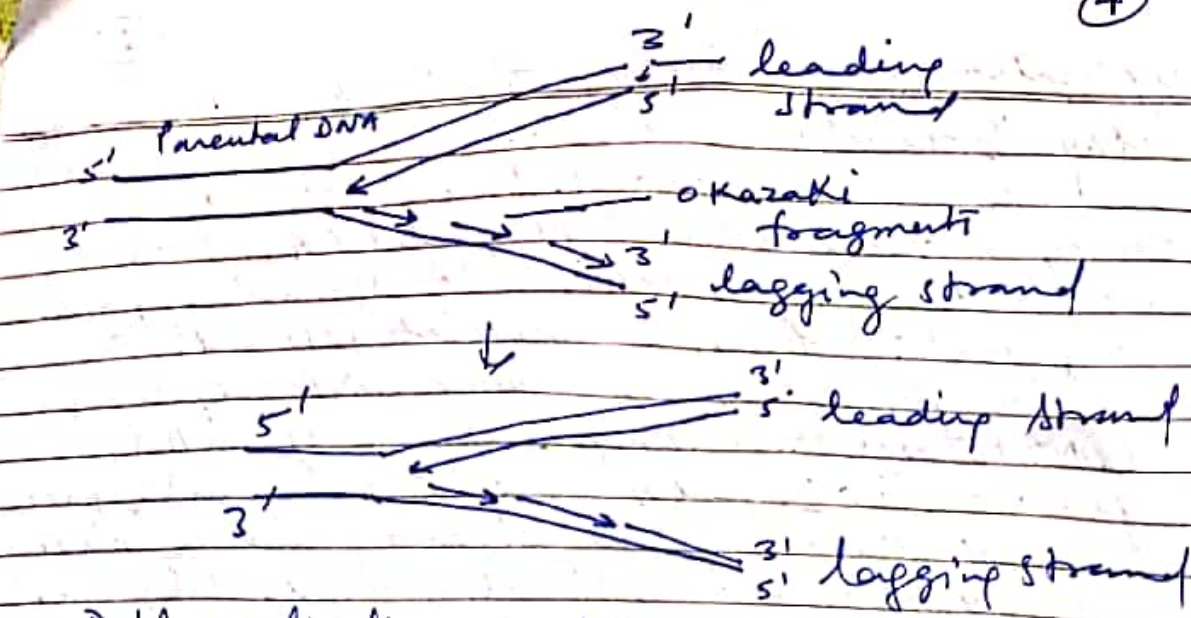 4
3' leading
5' strand
Parental DNA
5'
3'
okazaki
fragments
3'
5' lagging strand
5'
3'
5' leading strand
3'
3'
5' lagging strand